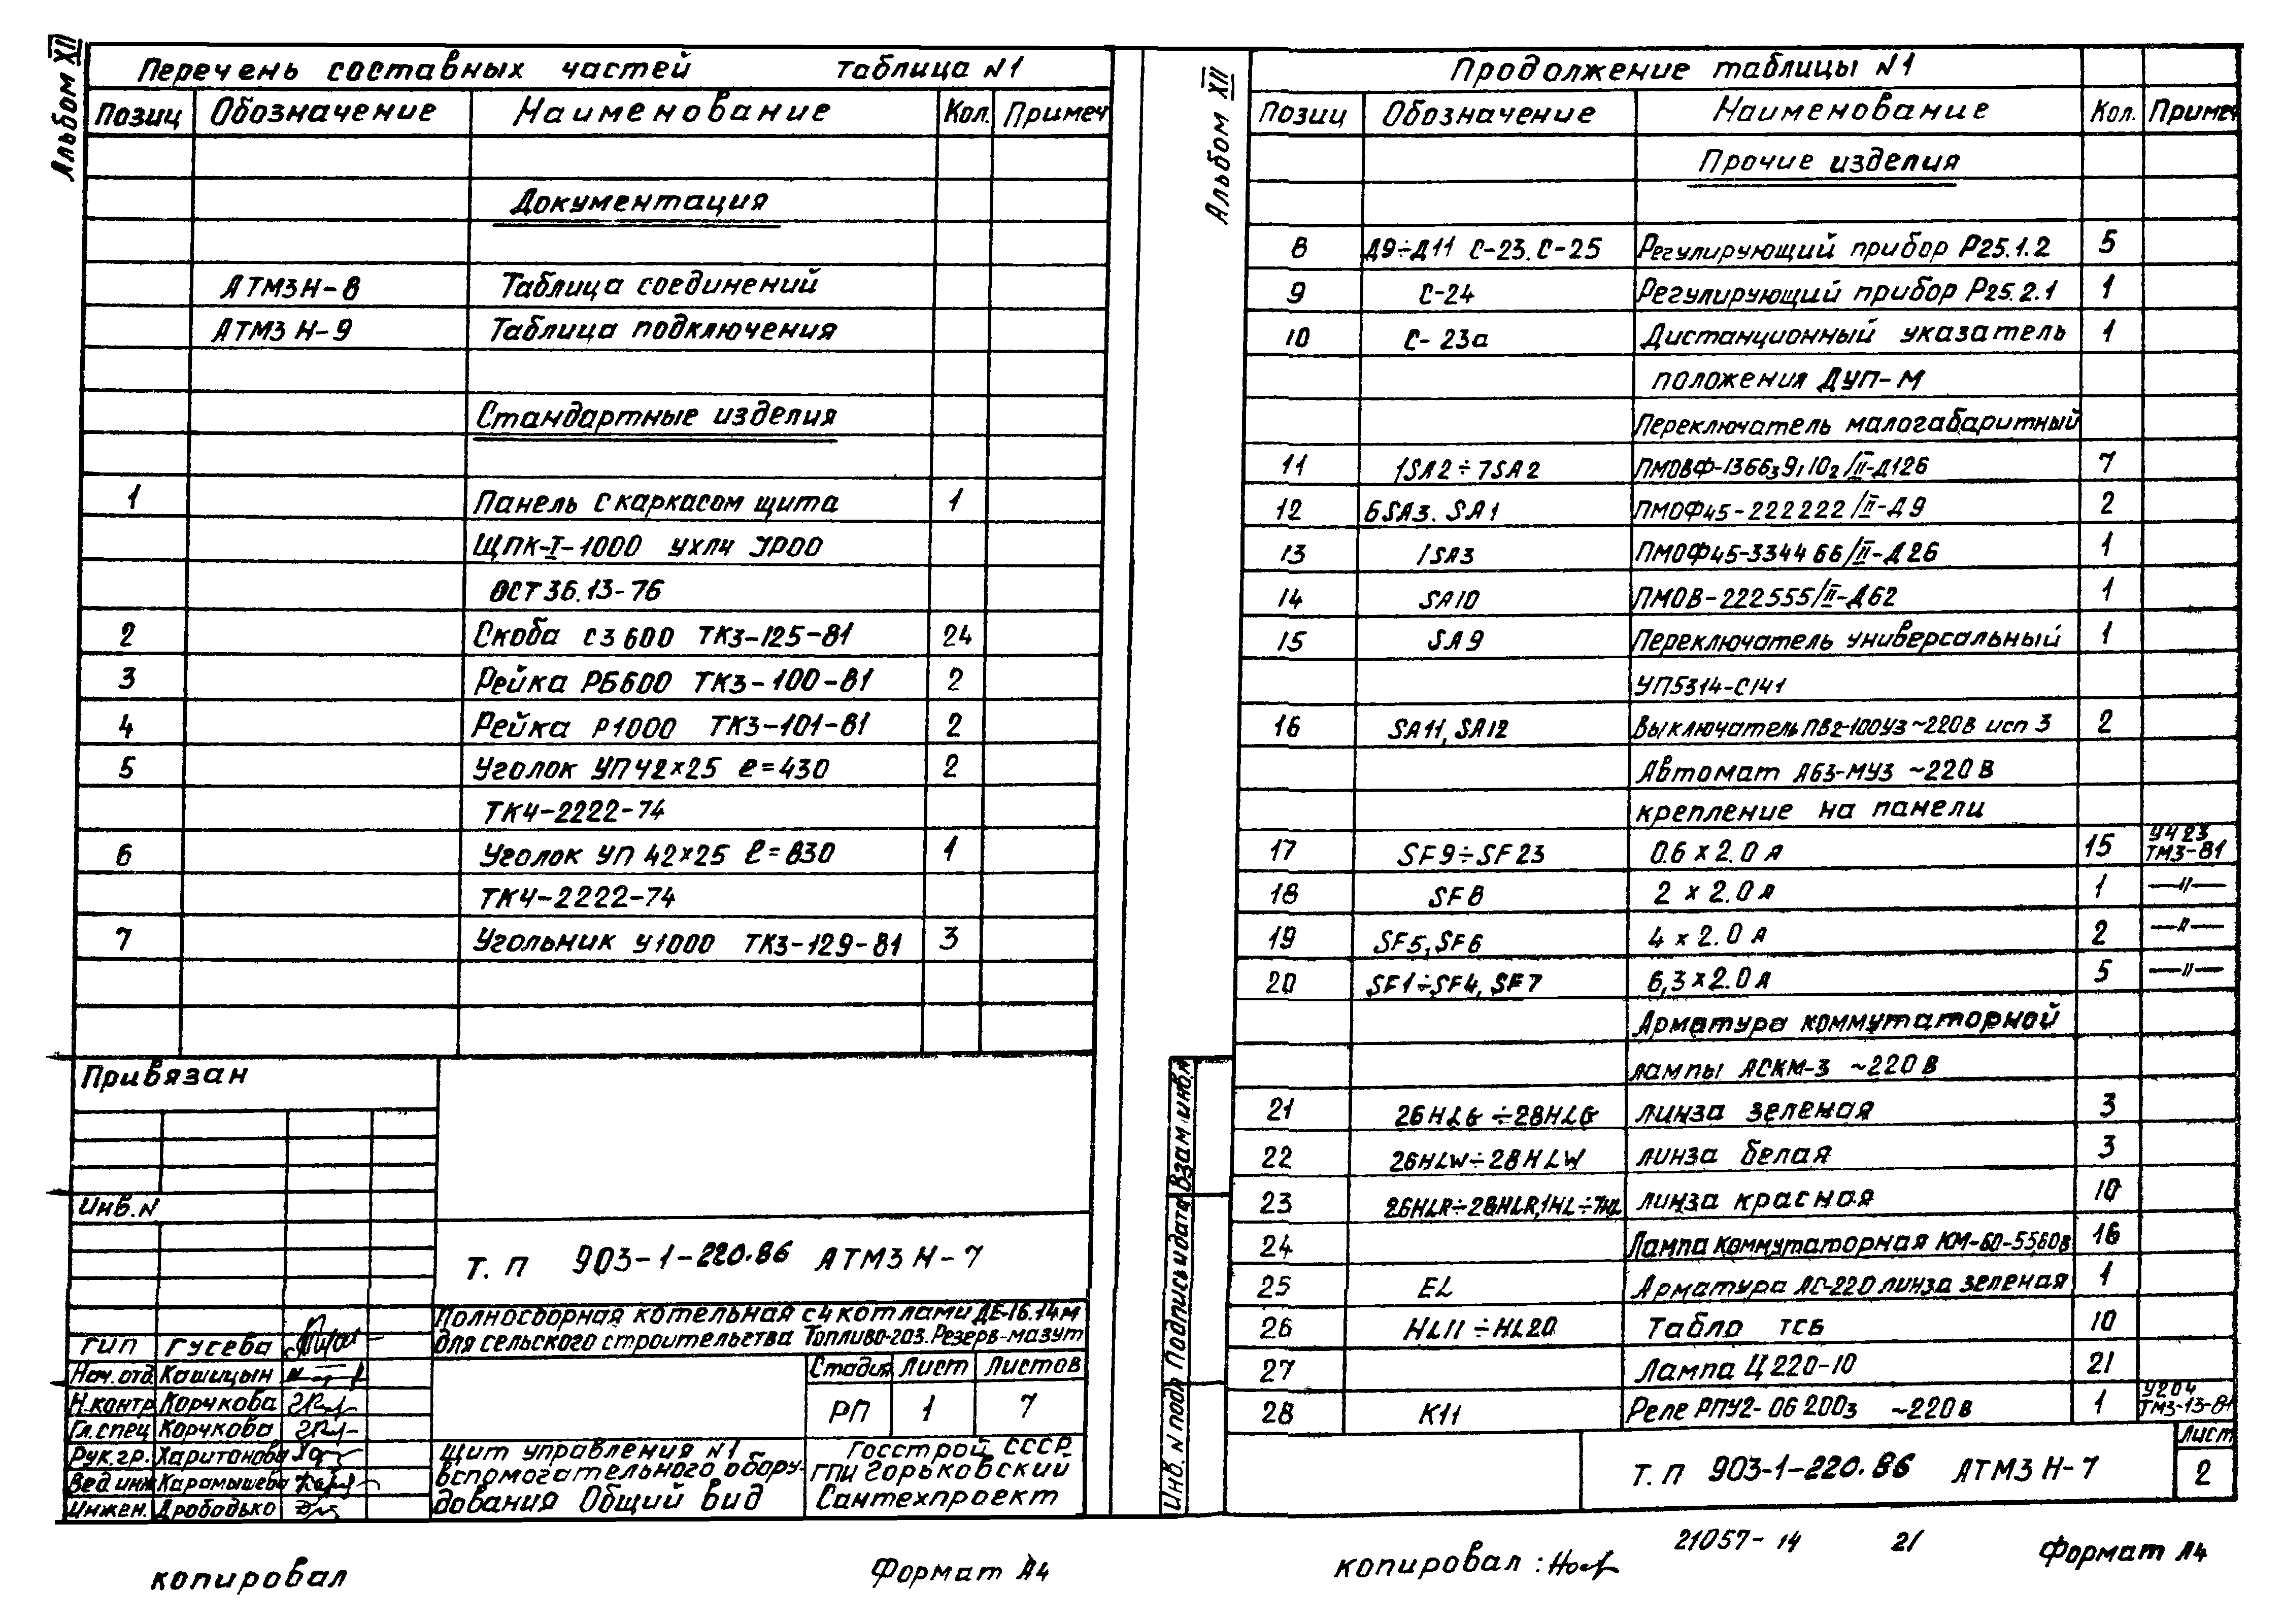 Альбом XII
Перечень составных частей таблица N1
Позиц Обозначение Наименование Кол. Примеч
Документация
АТМ3 Н-8 Таблица соединений
АТМ3 Н-9 Таблица подключения
Стандартные изделия
1 Панель с каркасом щита 1
ЩПК-I-1000 УХЛ4 JP00
ОСТ 36.13-76
2 Скоба С3 600 ТК3-125-81 24
3 Рейка РБ600 ТК3-100-81 2
4 Рейка Р1000 ТК3-101-81 2
5 Уголок УП 42×25 ℓ=430 2
ТК4-2222-74
6 Уголок УП 42×25 ℓ=830 1
ТК4-2222-74
7 Угольник У1000 ТК3-129-81 3
Привязан
Инв. N
Т. П 903-1-220.86 АТМ3 Н-7
Полносборная котельная с 4 котлами ДЕ-16.14м
для сельского строительства Топливо-газ. Резерв-мазут
Стадия Лист Листов
РП 1 7
ГИП Гусева
Нач. отд. Кашицын
Н.контр Корчкова
Гл.спец Корчкова
Рук.гр. Харитонова
Вед инж Карамышева
Инжен. Дрободько
Щит управления N1
вспомогательного обору-
дования Общий вид
Госстрой СССР
ГПИ Горьковский
Сантехпроект
копировал Формат А4
Альбом XII
Продолжение таблицы N1
Позиц Обозначение Наименование Кол. Примеч
Прочие изделия
8 Д9÷Д11 С-23. С-25 Регулирующий прибор Р25.1.2 5
9 С-24 Регулирующий прибор Р25.2.1 1
10 С-23а Дистанционный указатель 1
положения ДУП-М
Переключатель малогабаритный
11 1SA2÷7SA2 ПМОВФ-1366₃9,10₂/II-Д126 7
12 6SA3. SA1 ПМОФ45-222222/II-Д9 2
13 1SA3 ПМОФ45-334466/II-Д26 1
14 SA10 ПМОВ-222555/II-Д62 1
15 SA9 Переключатель универсальный 1
УП5314-С141
16 SA11, SA12 Выключатель ПВ2-100У3 ~220В исп 3 2
Автомат А63-МУ3 ~220 В
крепление на панели
17 SF9÷SF23 0.6 × 2.0 А 15 У423 ТМ3-81
18 SF8 2 × 2.0 А 1 —"—
19 SF5, SF6 4 × 2.0 А 2 —"—
20 SF1÷SF4, SF7 6,3 × 2.0 А 5 —"—
Арматура коммутаторной
лампы АСКМ-3 ~220 В
21 26HLG÷28HLG линза зеленая 3
22 26HLW÷28HLW линза белая 3
23 26HLR÷28HLR, 1HL÷7HL линза красная 10
24 Лампа коммутаторная КМ-60-55,60в 16
25 EL Арматура АС-220 линза зеленая 1
26 HL11÷HL20 Табло ТСБ 10
27 Лампа Ц 220-10 21
28 К11 Реле РПУ2-06 200₃ ~220 в 1 У204 ТМ3-13-81
Взам инв.N
Подпись и дата
Инв. N подл
Т. П 903-1-220.86 АТМ3 Н-7
Лист
2
21057-14 21
копировал: Формат А4